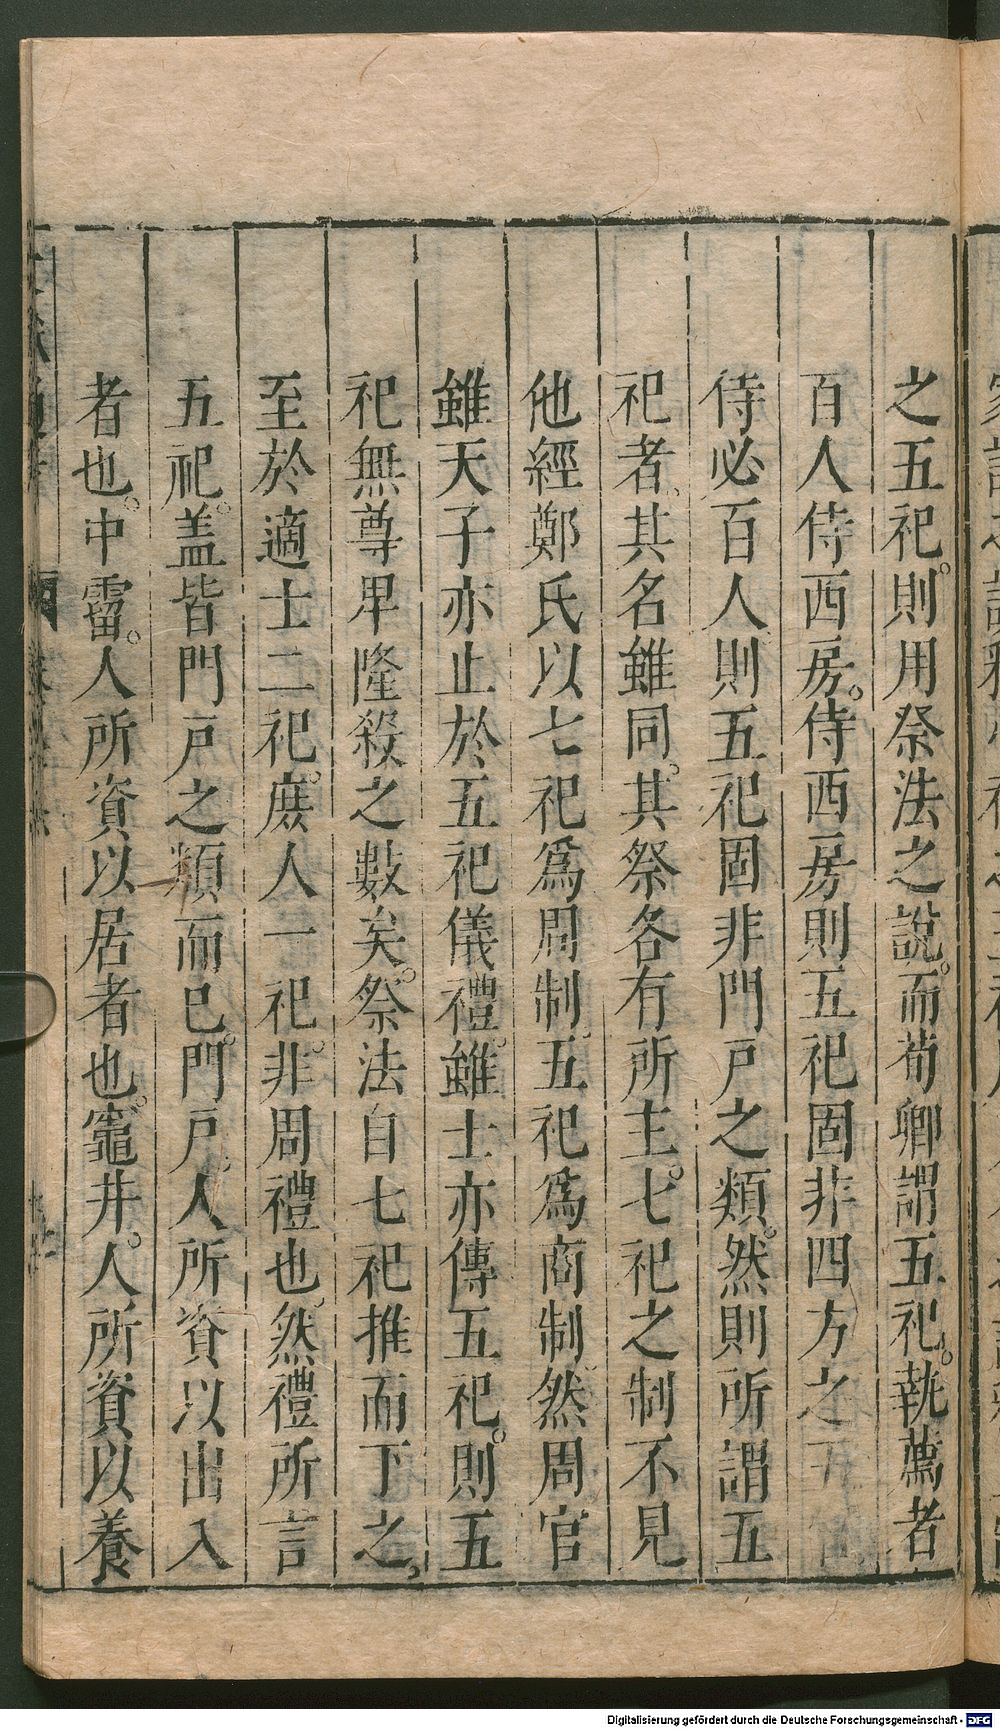 之五祀。則用祭法之說。而荀卿謂五祀。執薦者
百人侍西房。侍西房則五祀固非四方之五
侍必百人則五祀固非門戸之類。然則所謂五
祀者。其名雖同。其祭各有所主。七祀之制不見
他經鄭氏以七祀爲周制。五祀爲商制。然周官
雖天子亦止於五祀儀禮。雖士亦傳五祀。則五
祀無尊卑隆殺之數矣。祭法自七祀推而下之、
至於適士二祀。庶人一祀。非周禮也。然禮所言
五祀。盖皆門戸之類而已。門戸。人所資以出入
者也。中霤。人所資以居者也。竈井。人所資以養
Digitalisierung gefördert durch die Deutsche Forschungsgemeinschaft - DFG